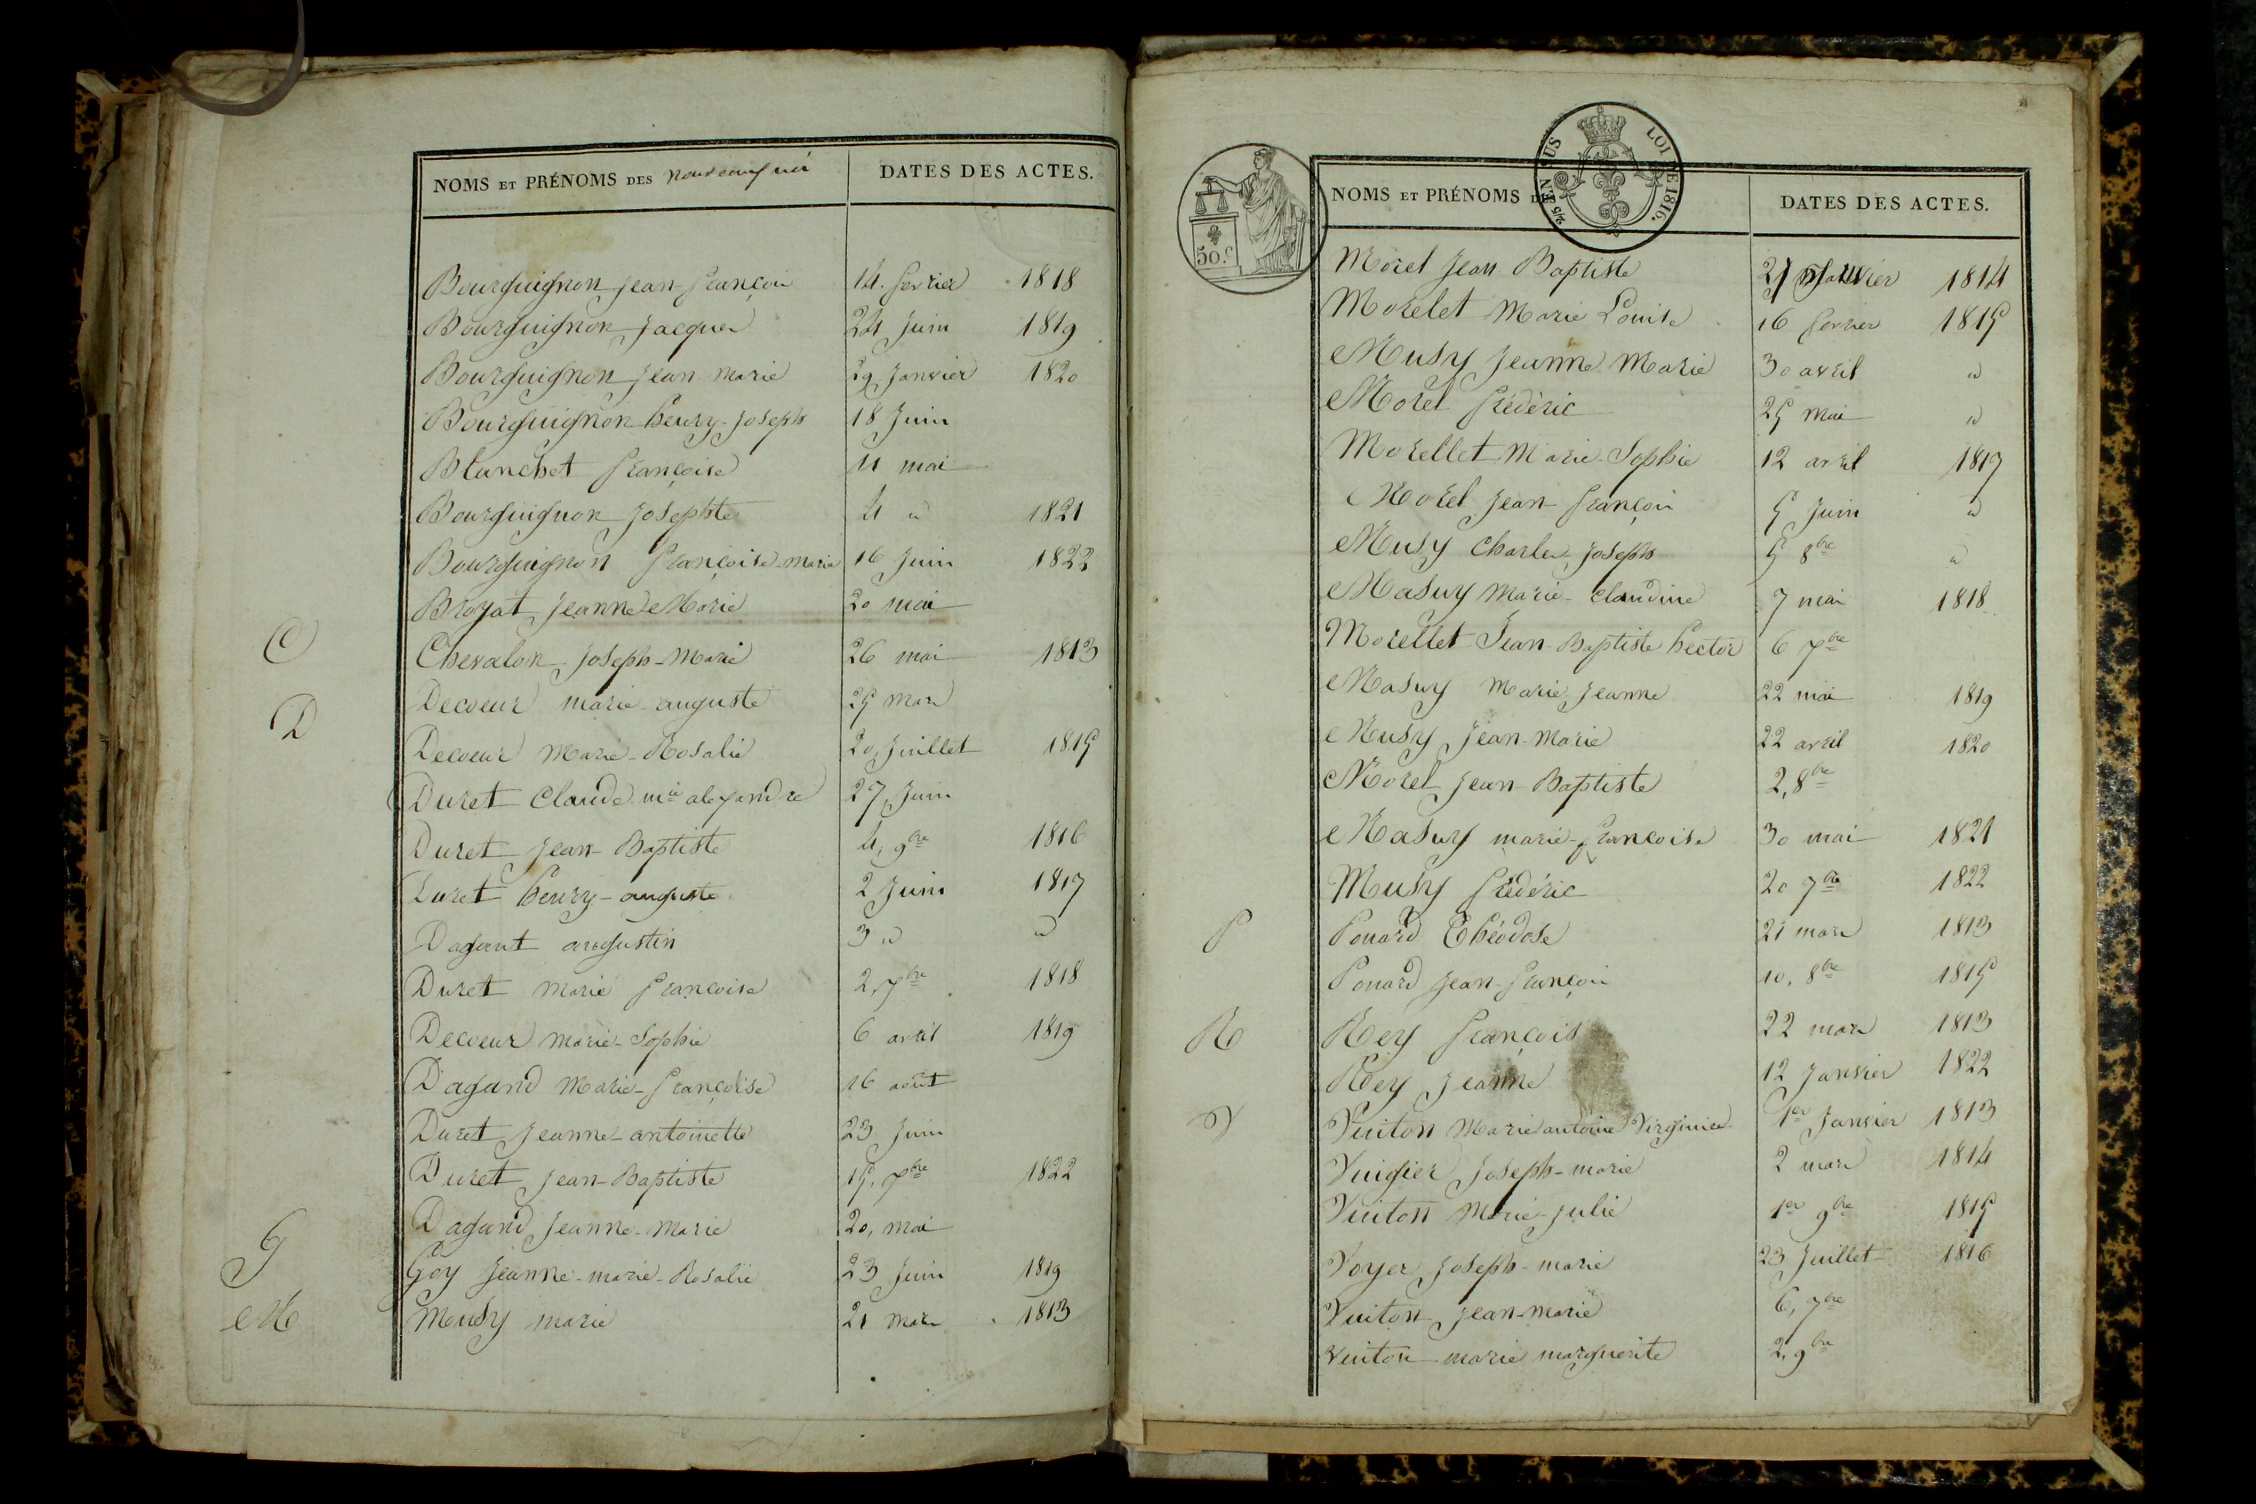 NOMS ET PRÉNOMS DES nouveaux nés DATES DES ACTES.
Bourguignon jean-françois 14. fevrier 1818
Bourguignon Jacques 24 Juin 1819
Bourguignon jean marie 29 Janvier 1820
Bourguignon henry-joseph 18 Juin
Blanchet françoise 4 mai
Bourguignon josephte 4 id 1821
Bourguignon françoise-marie 16 Juin 1822
Broyat jeanne Marie 20 mai
C
Chevalon joseph-Marie 26 mai 1813
D
Decoeur marie-auguste 25 mars
Decoeur Marie-Rosalie 20, Juillet 1815
Duret Claude mie alexandre 27, Juin
Duret jean-Baptiste 4, 9bre 1816
Duret henry-auguste 2 Juin 1817
Dagant augustin 3 id id
Duret marie françoise 2, 7bre 1818
Decoeur Marie-Sophie 6 avril 1819
Dagand Marie-françoise 16 août
Duret jeanne-antoinette 23 Juin
Duret jean-Baptiste 15, 7bre 1822
Dagand jeanne-marie 20, mai
G
Goy jeanne-marie-Rosalie 23 Juin 1819
M
Musy marie 21 mars 1813
50.c
EN SUS LOI DE 1816.
NOMS ET PRÉNOMS DATES DES ACTES.
Morel Jean Baptiste 21 Janvier 1814
Morelet Marie Louise 16 fevrier 1815
Musy Jeanne Marie 30 avril id
Morel frédéric 25 mai id
Morellet Marie-Sophie 12 avril 1817
Morel jean françois 5 Juin id
Musy Charles joseph 5 8bre id
Masuy Marie-Claudine 7 mai 1818
Morellet Jean-Baptiste hector 6 7bre
Masuy Marie jeanne 22 mai 1819
Musy jean-Marie 22 avril 1820
Morel jean-Baptiste 2, 8bre
Masuy marie-françoise 30 mai 1821
Musy frédéric 20 7bre 1822
P
Ponard Théodose 21 mars 1813
Ponard jean-françois 10, 8bre 1815
R
Rey françois 22 mars 1813
Rey jeanne 12 Janvier 1822
V
Vuiton Marie antoine Virginie 1er Janvier 1813
Vuigier joseph-marie 2 mars 1814
Vuiton Marie-julie 1er 9bre 1815
Voyer joseph-marie 23 Juillet 1816
Vuiton jean-marie 6, 7bre
Vuiton marie marguerite 2, 9bre